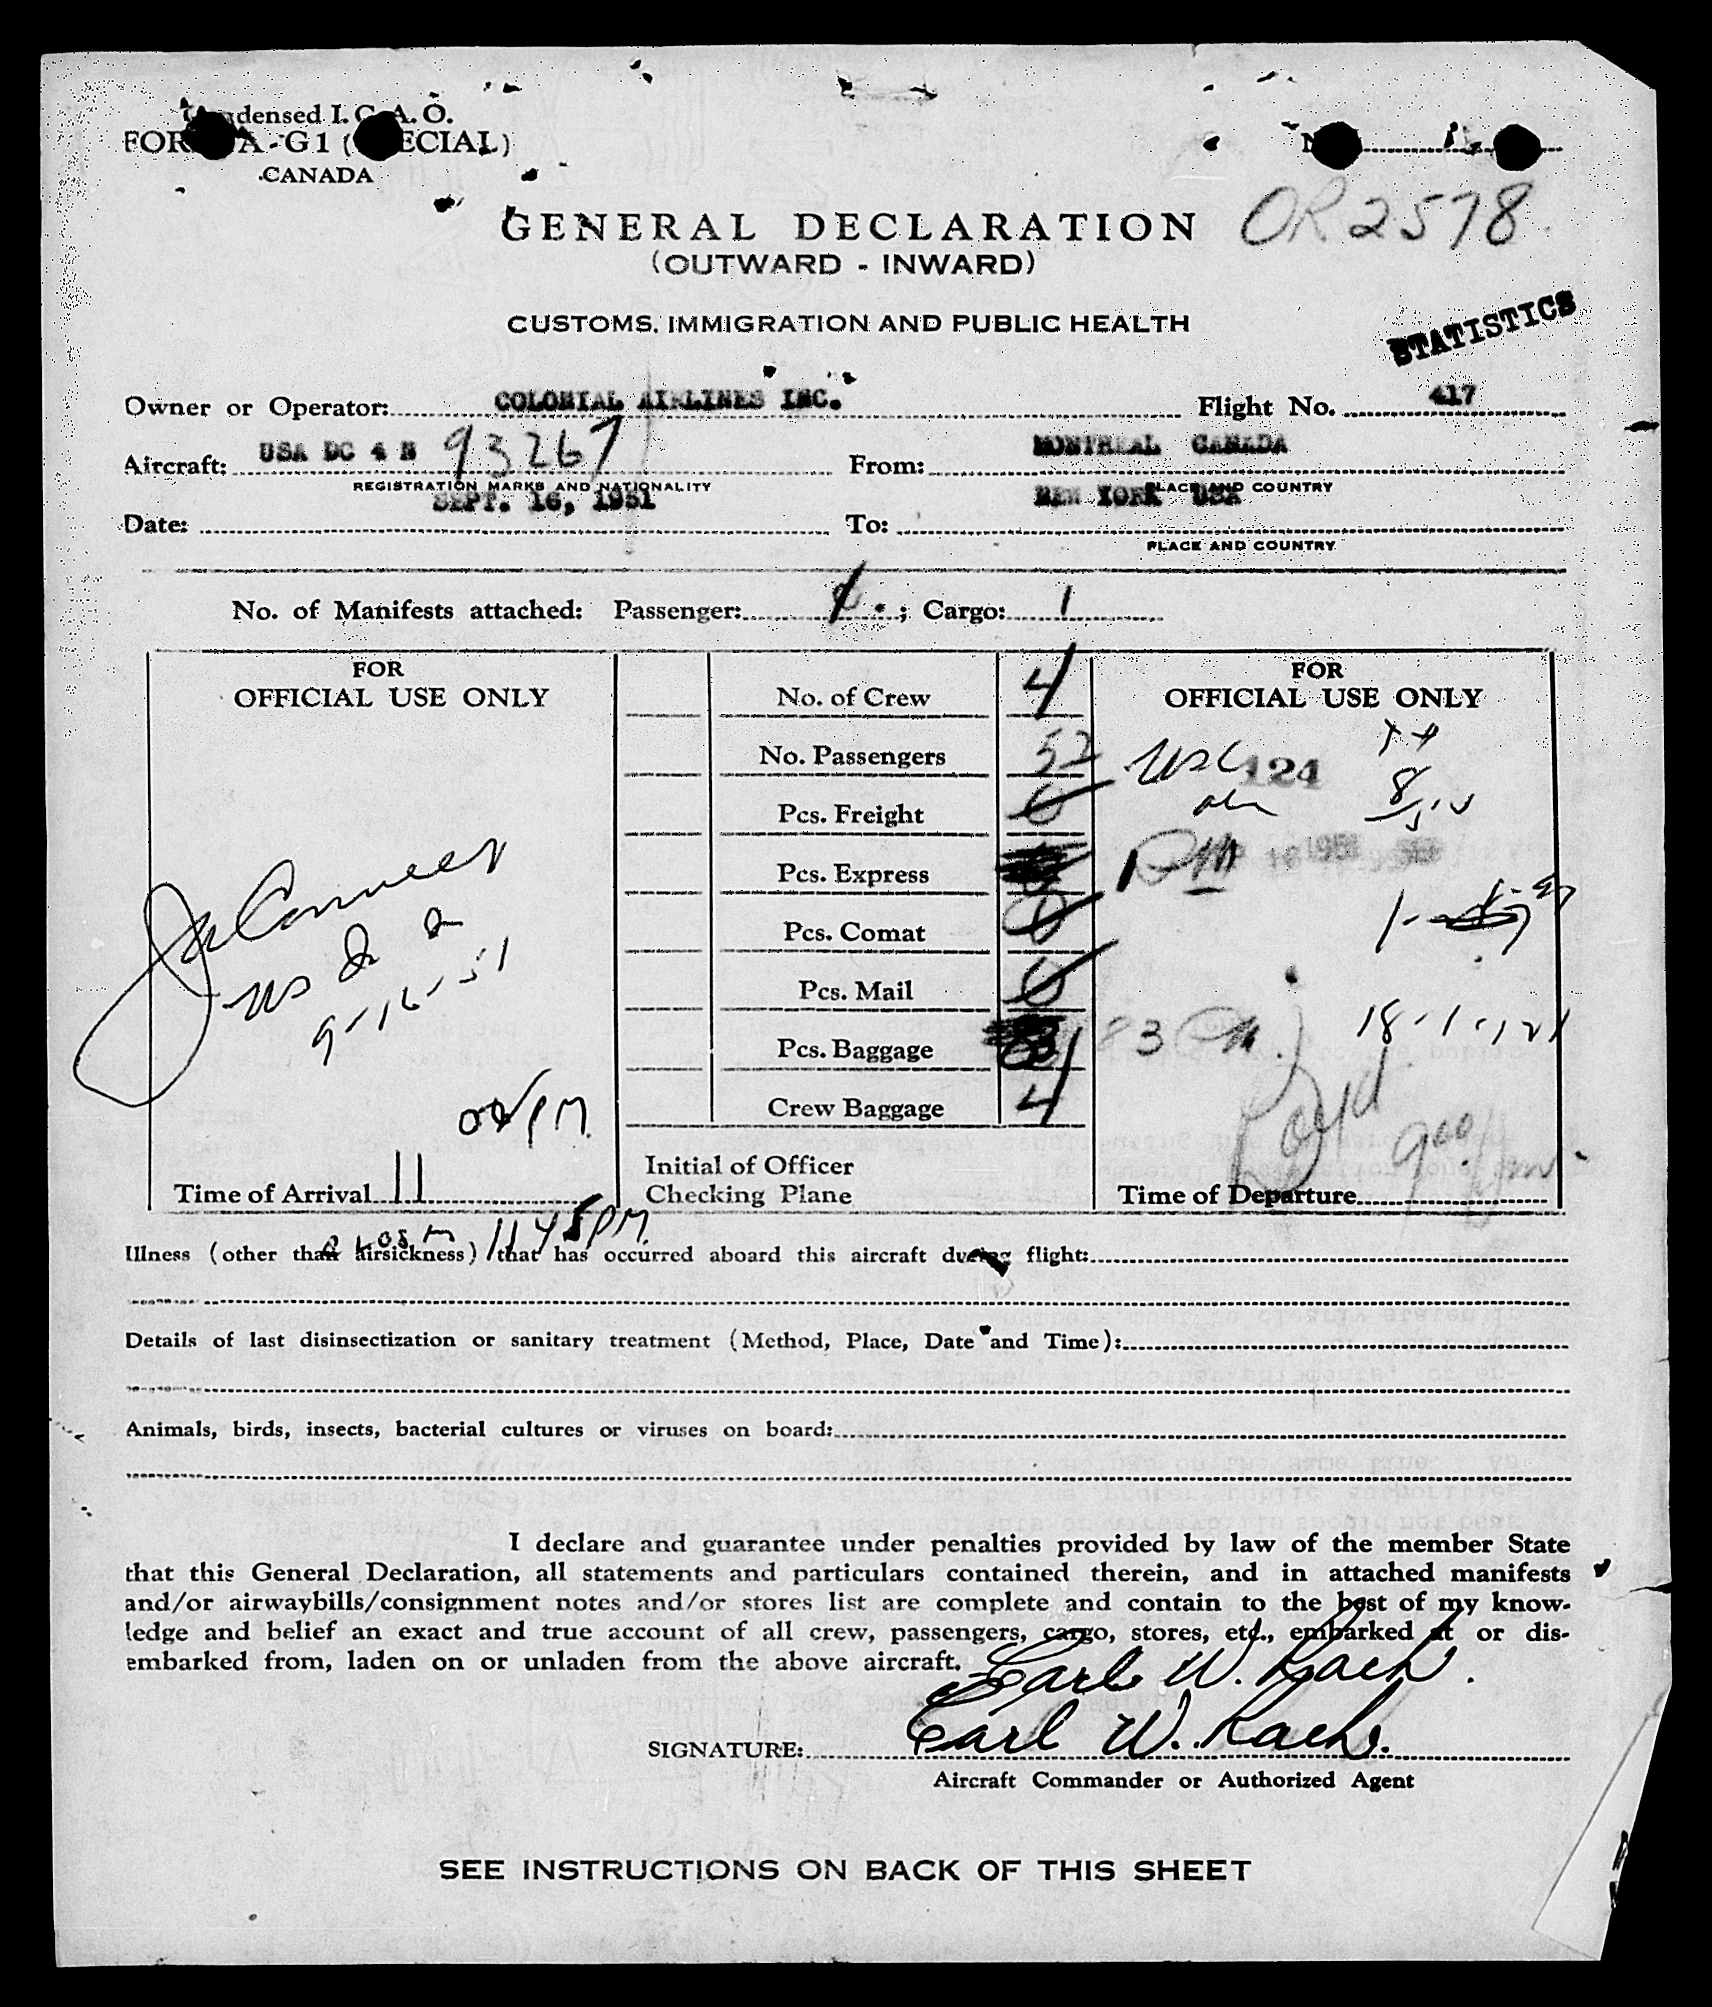 Condensed I.C.A.O.
FORM A-G1 (SPECIAL)
CANADA
OR 2578
GENERAL DECLARATION
(OUTWARD - INWARD)
CUSTOMS, IMMIGRATION AND PUBLIC HEALTH
STATISTICS
Owner or Operator: COLONIAL AIRLINES INC. Flight No. 417
Aircraft: USA DC 4 N 93267 From: MONTREAL CANADA
REGISTRATION MARKS AND NATIONALITY PLACE AND COUNTRY
Date: SEPT. 16, 1951 To: NEW YORK USA
PLACE AND COUNTRY
No. of Manifests attached: Passenger: ; Cargo: 1
FOR
OFFICIAL USE ONLY
9-16-51
PM
Time of Arrival 11
11 45 PM
No. of Crew 4
No. Passengers 52
Pcs. Freight 0
Pcs. Express
Pcs. Comat 0
Pcs. Mail 0
Pcs. Baggage 83
Crew Baggage 4
Initial of Officer
Checking Plane
FOR
OFFICIAL USE ONLY
124
16 1951
18-1-121
Time of Departure 9 00 pm
Illness (other than airsickness) that has occurred aboard this aircraft during flight:
Details of last disinsectization or sanitary treatment (Method, Place, Date and Time):
Animals, birds, insects, bacterial cultures or viruses on board:
I declare and guarantee under penalties provided by law of the member State
that this General Declaration, all statements and particulars contained therein, and in attached manifests
and/or airwaybills/consignment notes and/or stores list are complete and contain to the best of my know-
ledge and belief an exact and true account of all crew, passengers, cargo, stores, etc., embarked at or dis-
embarked from, laden on or unladen from the above aircraft.
Earl W. Rach.
SIGNATURE: Earl W. Rach.
Aircraft Commander or Authorized Agent
SEE INSTRUCTIONS ON BACK OF THIS SHEET